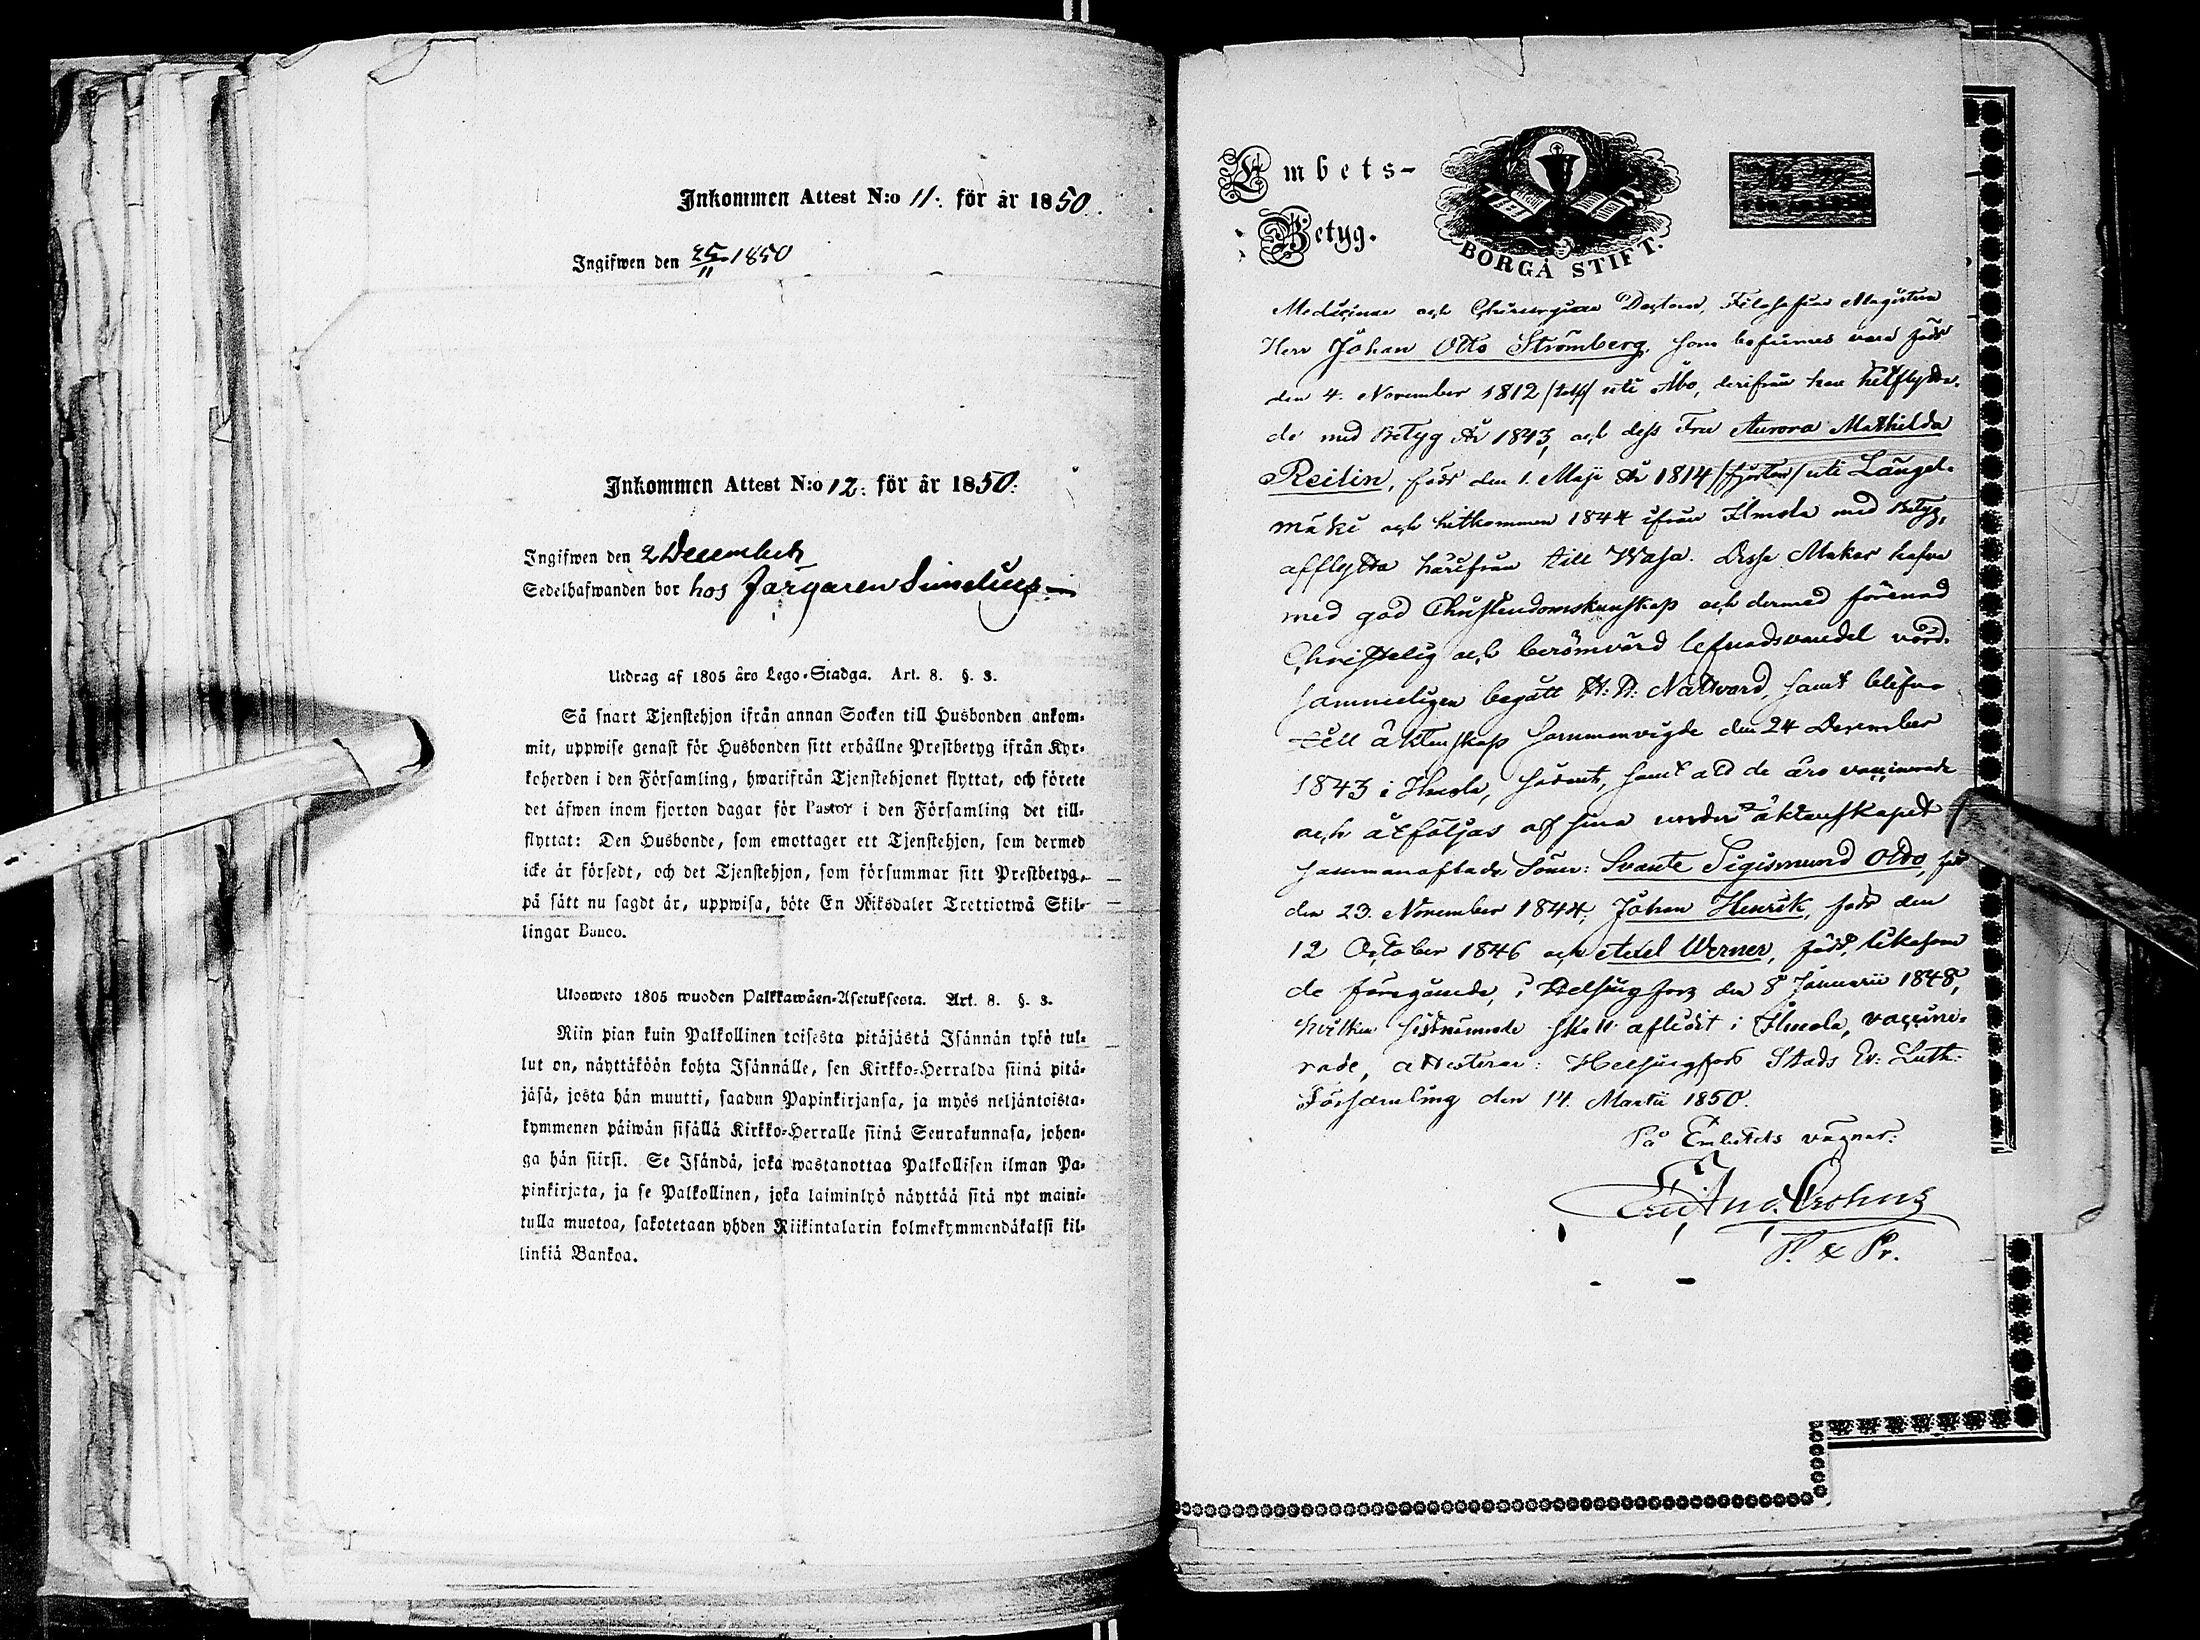 Inkommen Attest N:o 11. för år 1850.
Ingifwen den 25/11 1850
Inkommen Attest N:o 12. för år 1850.
Ingifwen den 2 December
Sedelhafwanden bor hos Färgaren Simelius
Utdrag af 1805 års Lego-Stadga. Art. 8. §. 3.
Så snart Tjenstehjon ifrån annan Socken till Husbonden ankom-
mit, uppwise genast för Husbonden sitt erhållne Prestbetyg ifrån Kyr-
koherden i den Församling, hwarifrån Tjenstehjonet flyttat, och förete
det äfwen inom fjorton dagar för Pastor i den Församling det till-
flyttat: Den Husbonde, som emottager ett Tjenstehjon, som dermed
icke är försedt, och det Tjenstehjon, som försummar sitt Prestbetyg,
på sätt nu sagdt är, uppwisa, böte En Riksdaler Trettiotwå Skil-
lingar Banco.
Ulosweto 1805 wuoden Palkkawäen-Asetuksesta. Art. 8. §. 3.
Niin pian kuin Palkollinen toisesta pitäjästä Isännän tykö tul-
lut on, näyttäköön kohta Isännälle, sen Kirkko-Herralda siinä pitä-
jäsä, josta hän muutti, saadun Papinkirjansa, ja myös neljäntoista-
kymmenen päiwän sisällä Kirkko-Herralle siinä Seurakunnasa, johon-
ga hän siirsi. Se Isändä, joka wastanottaa Palkollisen ilman Pa-
pinkirjata, ja se Palkollinen, joka laiminlyö näyttää sitä nyt maini-
tulla muotoa, sakotetaan yhden Riikintalarin kolmekymmendäkaksi kil-
linkiä Bankoa.
Embets-
Betyg.
BORGÅ STIFT.
Medicinæ och Chirurgiæ Doctorn, Filosofiæ Magistern
Herr Johan Otto Strömberg, som befinnes vara född
den 4. November 1812 /tolf/ uti Åbo, derifrån han hitflytta-
de med Betyg År 1843, och dess Fru Aurora Mathilda
Reilin, född den 1. Maji År 1814 /fjorton/ uti Längel-
mäki och hitkommen 1844 ifrån Ilmola med Betyg,
afflytta härifrån till Wasa. Dessa Makar hafva
med god Christendomskunskap och dermed förenad
Christelig och berömvärd lefnadsvandel vörd-
sammeligen begått H: H: Nattvard, samt blifva
till äktenskap sammanvigde den 24 December
1843 i Ilmola, samt att de äro vaccinerade
och åtföljas af sina under äktenskapet
sammanaflade Söner: Svante Sigismund Otto, född
den 23. November 1844, Johan Henrik, född den
12 October 1846 och Axel Werner, född, likasom
de föregående, i Helsingfors den 8 Januarii 1848,
hvilken sistnämnde skall aflidit i Ilmola, vaccine-
rade, attesterar: Helsingfors Stads Ev: Luth:
Församling den 14. Martii 1850.
På Embetets vägnar:
P. & Pr.